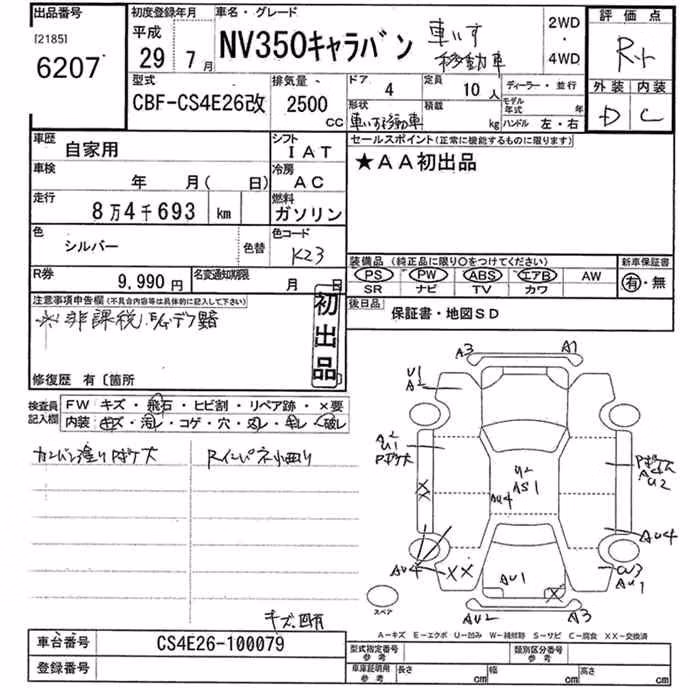 出品番号
[2185]
6207
初度登録年月
平成
29年 7月
車名・グレード
NV350キャラバン 車いす移動車
2WD
・
4WD
評価点
R
外装 内装
D C
型式
CBF-CS4E26改
排気量
2500
CC
ドア
4
定員
10人
ディーラー・並行
形状
車いす移動車
積載
kg
モデル年式 年
ハンドル 左・右
車歴
自家用
シフト
IAT
車検
年 月( 日)
冷房
AC
走行
8万4千693 km
燃料
ガソリン
色
シルバー
色替
色コード
K23
R券
9,990円
名変通知期限
月 日
セールスポイント(正常に機能するものに限ります)
★AA初出品
装備品(純正品に限り○をつけてください)
PS PW ABS エアB AW
SR ナビ TV カワ
新車保証書
有・無
後日品
保証書・地図SD
注意事項申告欄(不具合内容等は具体的に記入して下さい)
非課税
初出品
修復歴 有〔箇所
検査員記入欄
FW キズ・飛石・ヒビ割・リペア跡・×要
内装・キズ・汚レ・コゲ・穴・凹レ・キレ・破レ
カンバン塗りボケ大
Rインパネ小凹り
キズ凹有
A3 A1
U1
A2
U2
U1
Pボケ大
U2
AS1
AU4
Pボケ大
A4
U2
XX
AU4
AU4
XX
AU1
X
UV3
AU1
AU2 A3
スペア
A-キズ E-エクボ U-凹み W-補修跡 S-サビ C-腐食 XX-交換済
車台番号
CS4E26-100079
登録番号
型式指定番号
参考
類別区分番号
参考
車庫証明用
参考
長さ cm 幅 cm 高さ cm